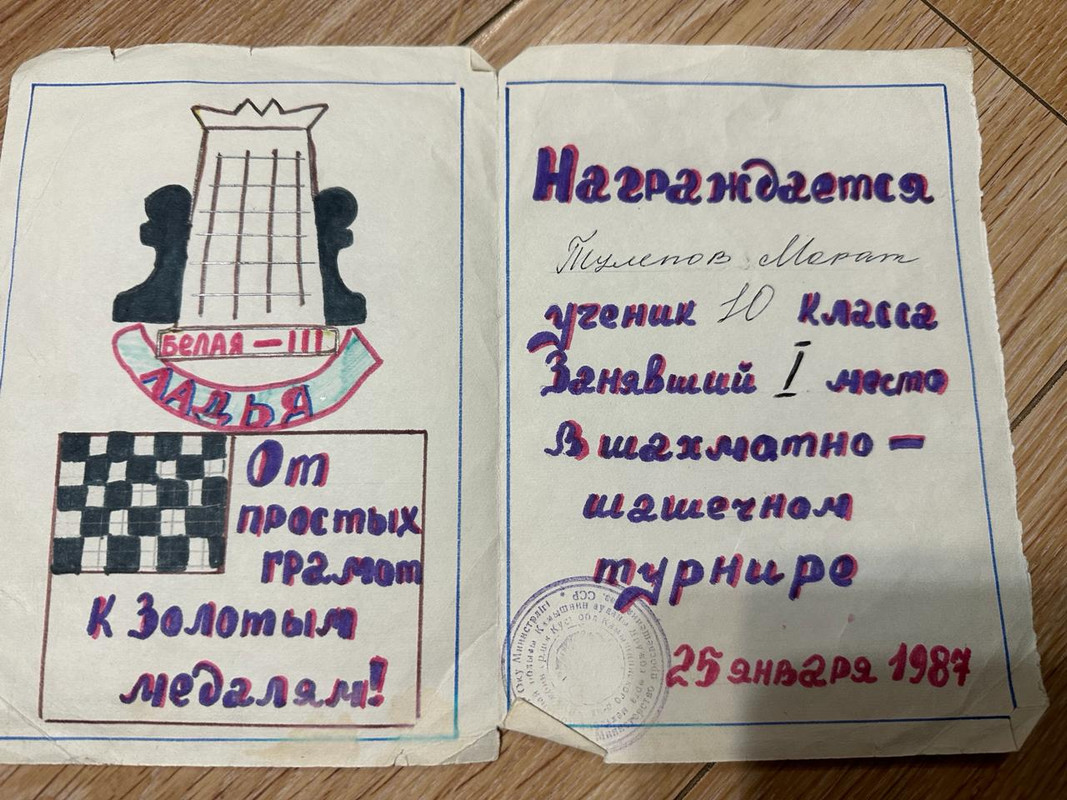 БЕЛАЯ — III
ЛАДЬЯ
От
простых
грамот
к Золотым
медалям!
Награждается
Тулепов Марат
ученик 10 класса
Занявший I место
В шахматно —
шашечном
турнире
25 января 1987